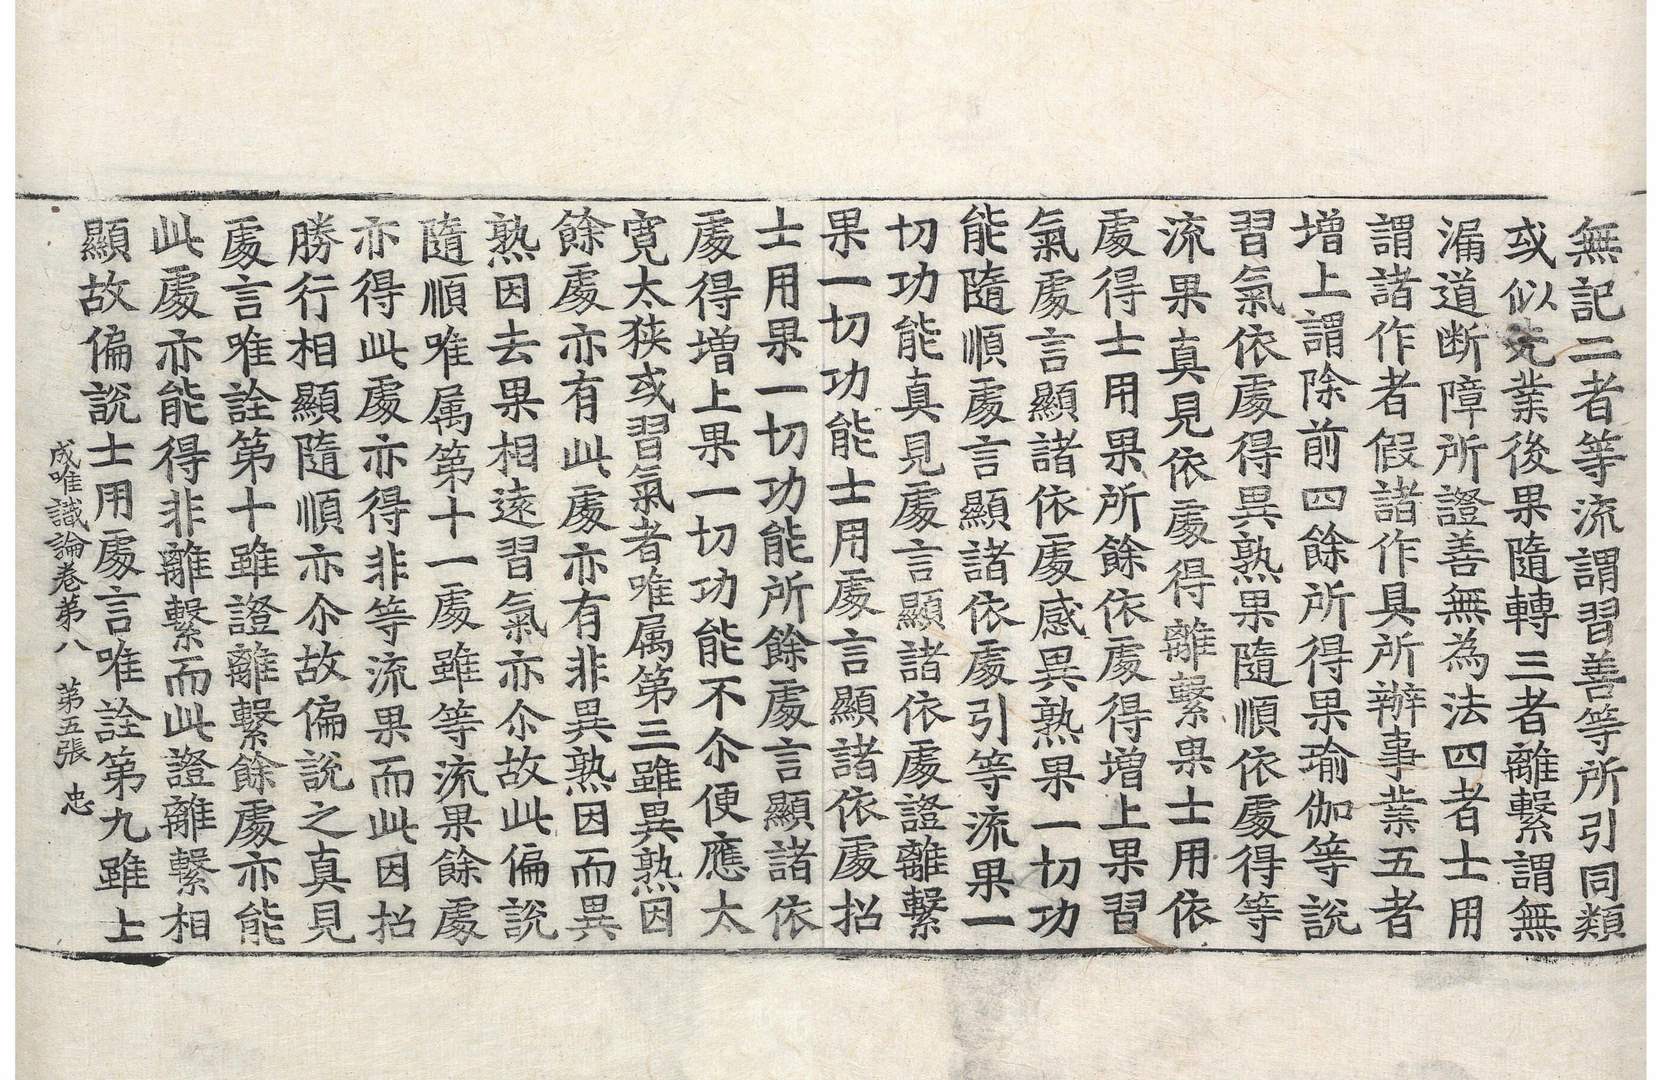 無記二者等流謂習善等所引同類
或似先業後果隨轉三者離繫謂無
漏道断障所證善無為法四者士用
謂諸作者假諸作具所辦事業五者
增上謂除前四餘所得果瑜伽等說
習氣依處得異熟果隨順依處得等
流果真見依處得離繫果士用依
處得士用果所餘依處得增上果習
氣處言顯諸依處感異熟果一切功
能隨順處言顯諸依處引等流果一
切功能真見處言顯諸依處證離繫
果一切功能士用處言顯諸依處招
士用果一切功能所餘處言顯諸依
處得增上果一切功能不尒便應太
寬太狹或習氣者唯属第三雖異熟因
餘處亦有此處亦有非異熟因而異
熟因去果相遠習氣亦尒故此偏說
隨順唯属第十一處雖等流果餘處
亦得此處亦得非等流果而此因招
勝行相顯隨順亦尒故偏說之真見
處言唯詮第十雖證離繫餘處亦能
此處亦能得非離繫而此證離繫相
顯故偏說士用處言唯詮第九雖士
成唯識論卷第八 第五張 忠